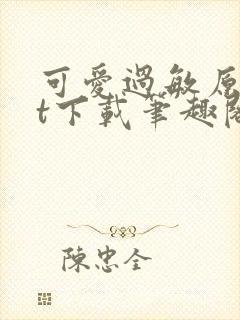 可愛過敏原
t下載筆趣閣
陳忠全